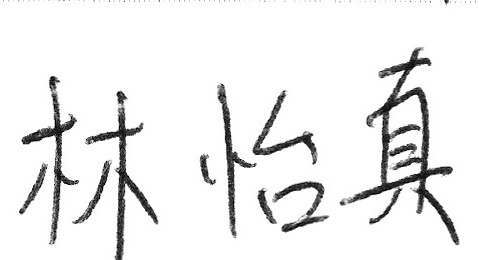 林怡真